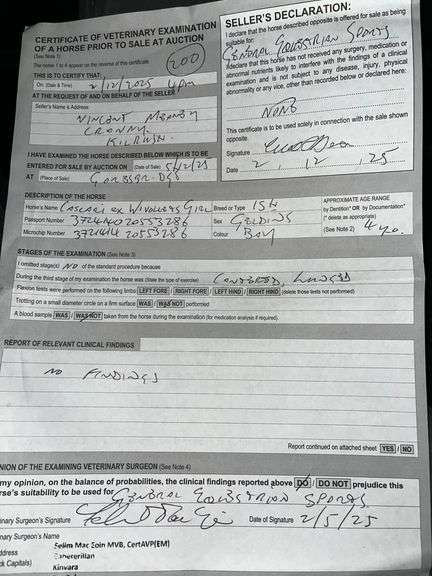 CERTIFICATE OF VETERINARY EXAMINATION
OF A HORSE PRIOR TO SALE AT AUCTION
(See Note 1)
The notes 1 to 4 appear on the reverse of this certificate
200
THIS IS TO CERTIFY THAT:
On: (Date & Time) 2/12/2025 4pm
AT THE REQUEST OF AND ON BEHALF OF THE SELLER
Seller's Name & Address
VINCENT
KILRUSH
I HAVE EXAMINED THE HORSE DESCRIBED BELOW WHICH IS TO BE
ENTERED FOR SALE BY AUCTION ON (Date of Sale) 5/12/25
AT (Place of Sale)
SELLER'S DECLARATION:
I declare that the horse described opposite is offered for sale as being
suitable for:
GENERAL EQUESTRIAN SPORTS
I declare that this horse has not received any surgery, medication or
abnormal nutrients likely to interfere with the findings of a clinical
examination and is not subject to any disease, injury, physical
abnormality or any vice, other than recorded below or declared here:
NONE
This certificate is to be used solely in connection with the sale shown
opposite.
Signature
Date 2 . 12 . 25
DESCRIPTION OF THE HORSE
Horse's Name Breed or Type ISH
Passport Number 372414020553286 Sex GELDING
Microchip Number Colour BAY
APPROXIMATE AGE RANGE
by Dentition* OR by Documentation*
(* delete as appropriate)
(See Note 2) 4 yo.
STAGES OF THE EXAMINATION (See Note 3)
I omitted stage(s) NO of the standard procedure because
During the third stage of my examination the horse was (State the type of exercise) CANTERED, LUNGED
Flexion tests were performed on the following limbs LEFT FORE / RIGHT FORE / LEFT HIND / RIGHT HIND (delete those tests not performed)
Trotting on a small diameter circle on a firm surface WAS / WAS NOT performed
A blood sample WAS / WAS NOT taken from the horse during the examination (for medication analysis if required).
REPORT OF RELEVANT CLINICAL FINDINGS
NO FINDINGS
Report continued on attached sheet YES / NO
NION OF THE EXAMINING VETERINARY SURGEON (See Note 4)
my opinion, on the balance of probabilities, the clinical findings reported above DO / DO NOT prejudice this
rse's suitability to be used for GENERAL EQUESTRIAN SPORTS.
inary Surgeon's Signature Date of Signature 2/5/25
inary Surgeon's Name
ddress
ck Capitals)
MVB, CertAVP(EM)
Kinvara